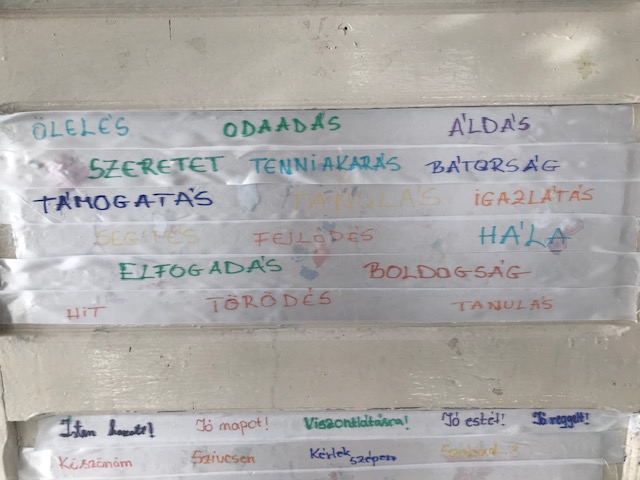 ÖLELÉS ODAADÁS ÁLDÁS
SZERETET TENNIAKARÁS BÁTORSÁG
TÁMOGATÁS TANULÁS IGAZLÁTÁS
SEGÍTÉS FEJLŐDÉS HÁLA
ELFOGADÁS BOLDOGSÁG
HIT TÖRŐDÉS TANULÁS
Isten hozott! Jó napot! Viszontlátásra! Jó estét! Jó reggelt!
Köszönöm Szívesen Kérlek szépen